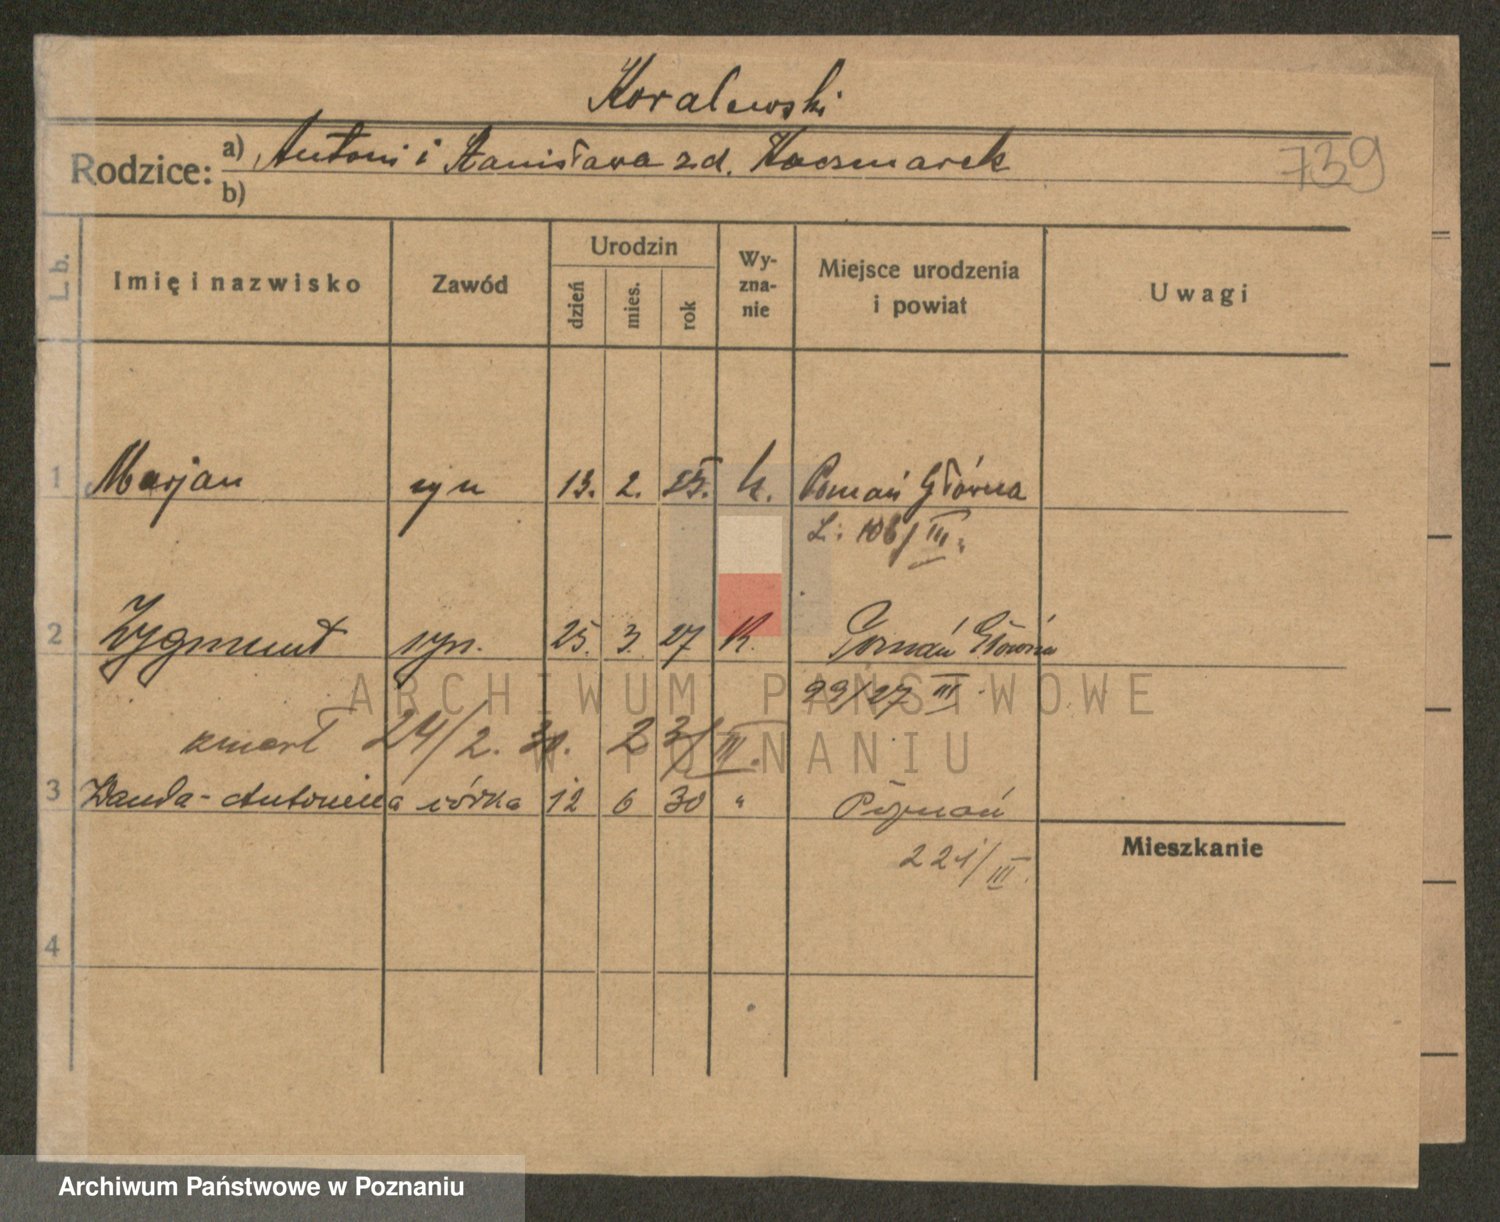 Koralewski
Rodzice: a) Antoni i Stanisława z d. Kaczmarek
739
b)
L. b. Imię i nazwisko Zawód Urodzin dzień mies. rok Wy-zna-nie Miejsce urodzenia i powiat Uwagi
1 Marjan syn 13. 2. 25. k. Poznań Główna
L: 106/III.
2 Zygmunt syn. 25. 3. 27 K. Poznań Główna
99/27 III.
zmarł 24/2. 30. 23/III.
3 Wanda-Antonina córka 12 6 30 " Poznań
221/III.
Mieszkanie
4
ARCHIWUM PAŃSTWOWE
W POZNANIU
Archiwum Państwowe w Poznaniu